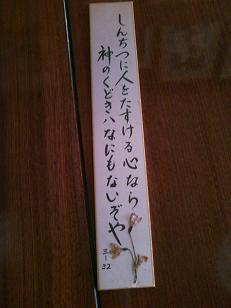 しんぢつに人をたすける心なら
神のくどきハなにもないぞや
三-32